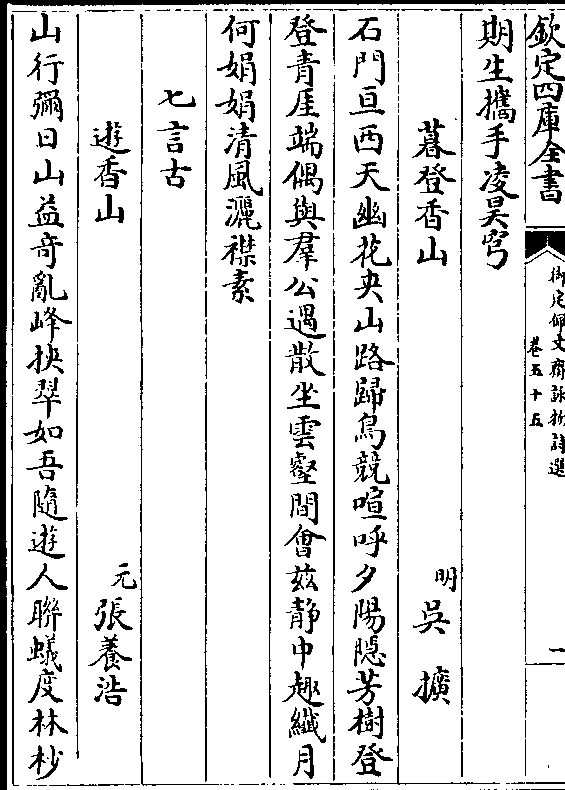 欽定四庫全書
御定佩文齋詠物詩選
卷五十五
一
期生攜手凌昊穹
暮登香山
明
吳擴
石門亘西天幽花夾山路歸鳥競喧呼夕陽隱芳樹登
登青厓端偶與羣公遇散坐雲壑間會兹静中趣纖月
何娟娟清風灑襟素
七言古
遊香山
元
張養浩
山行彌日山益竒亂峰抉翠如吾隨遊人聯蟻度林杪